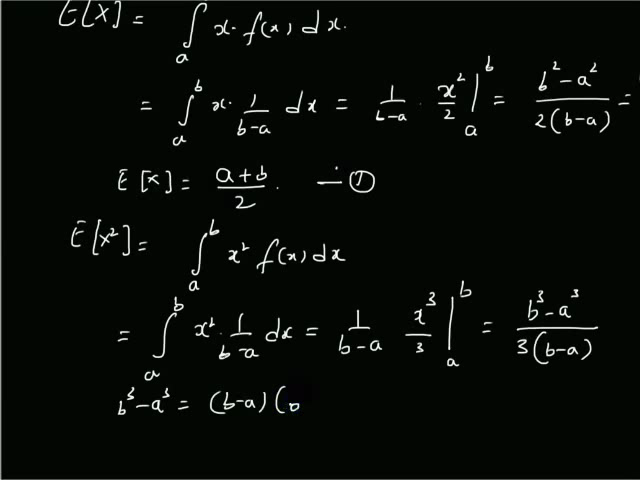 E[X] = ∫ₐ x· f(x) dx.
= ∫ₐᵇ x· 1/(b-a) dx = 1/(b-a) · x²/2 |ₐᵇ = (b² - a²)/(2(b-a)) =
E[X] = (a+b)/2 · — ①
E[X²] = ∫ₐᵇ x² f(x) dx
= ∫ₐᵇ x² · 1/(b-a) dx = 1/(b-a) x³/3 |ₐᵇ = (b³ - a³)/(3(b-a))
b³ - a³ = (b-a) (